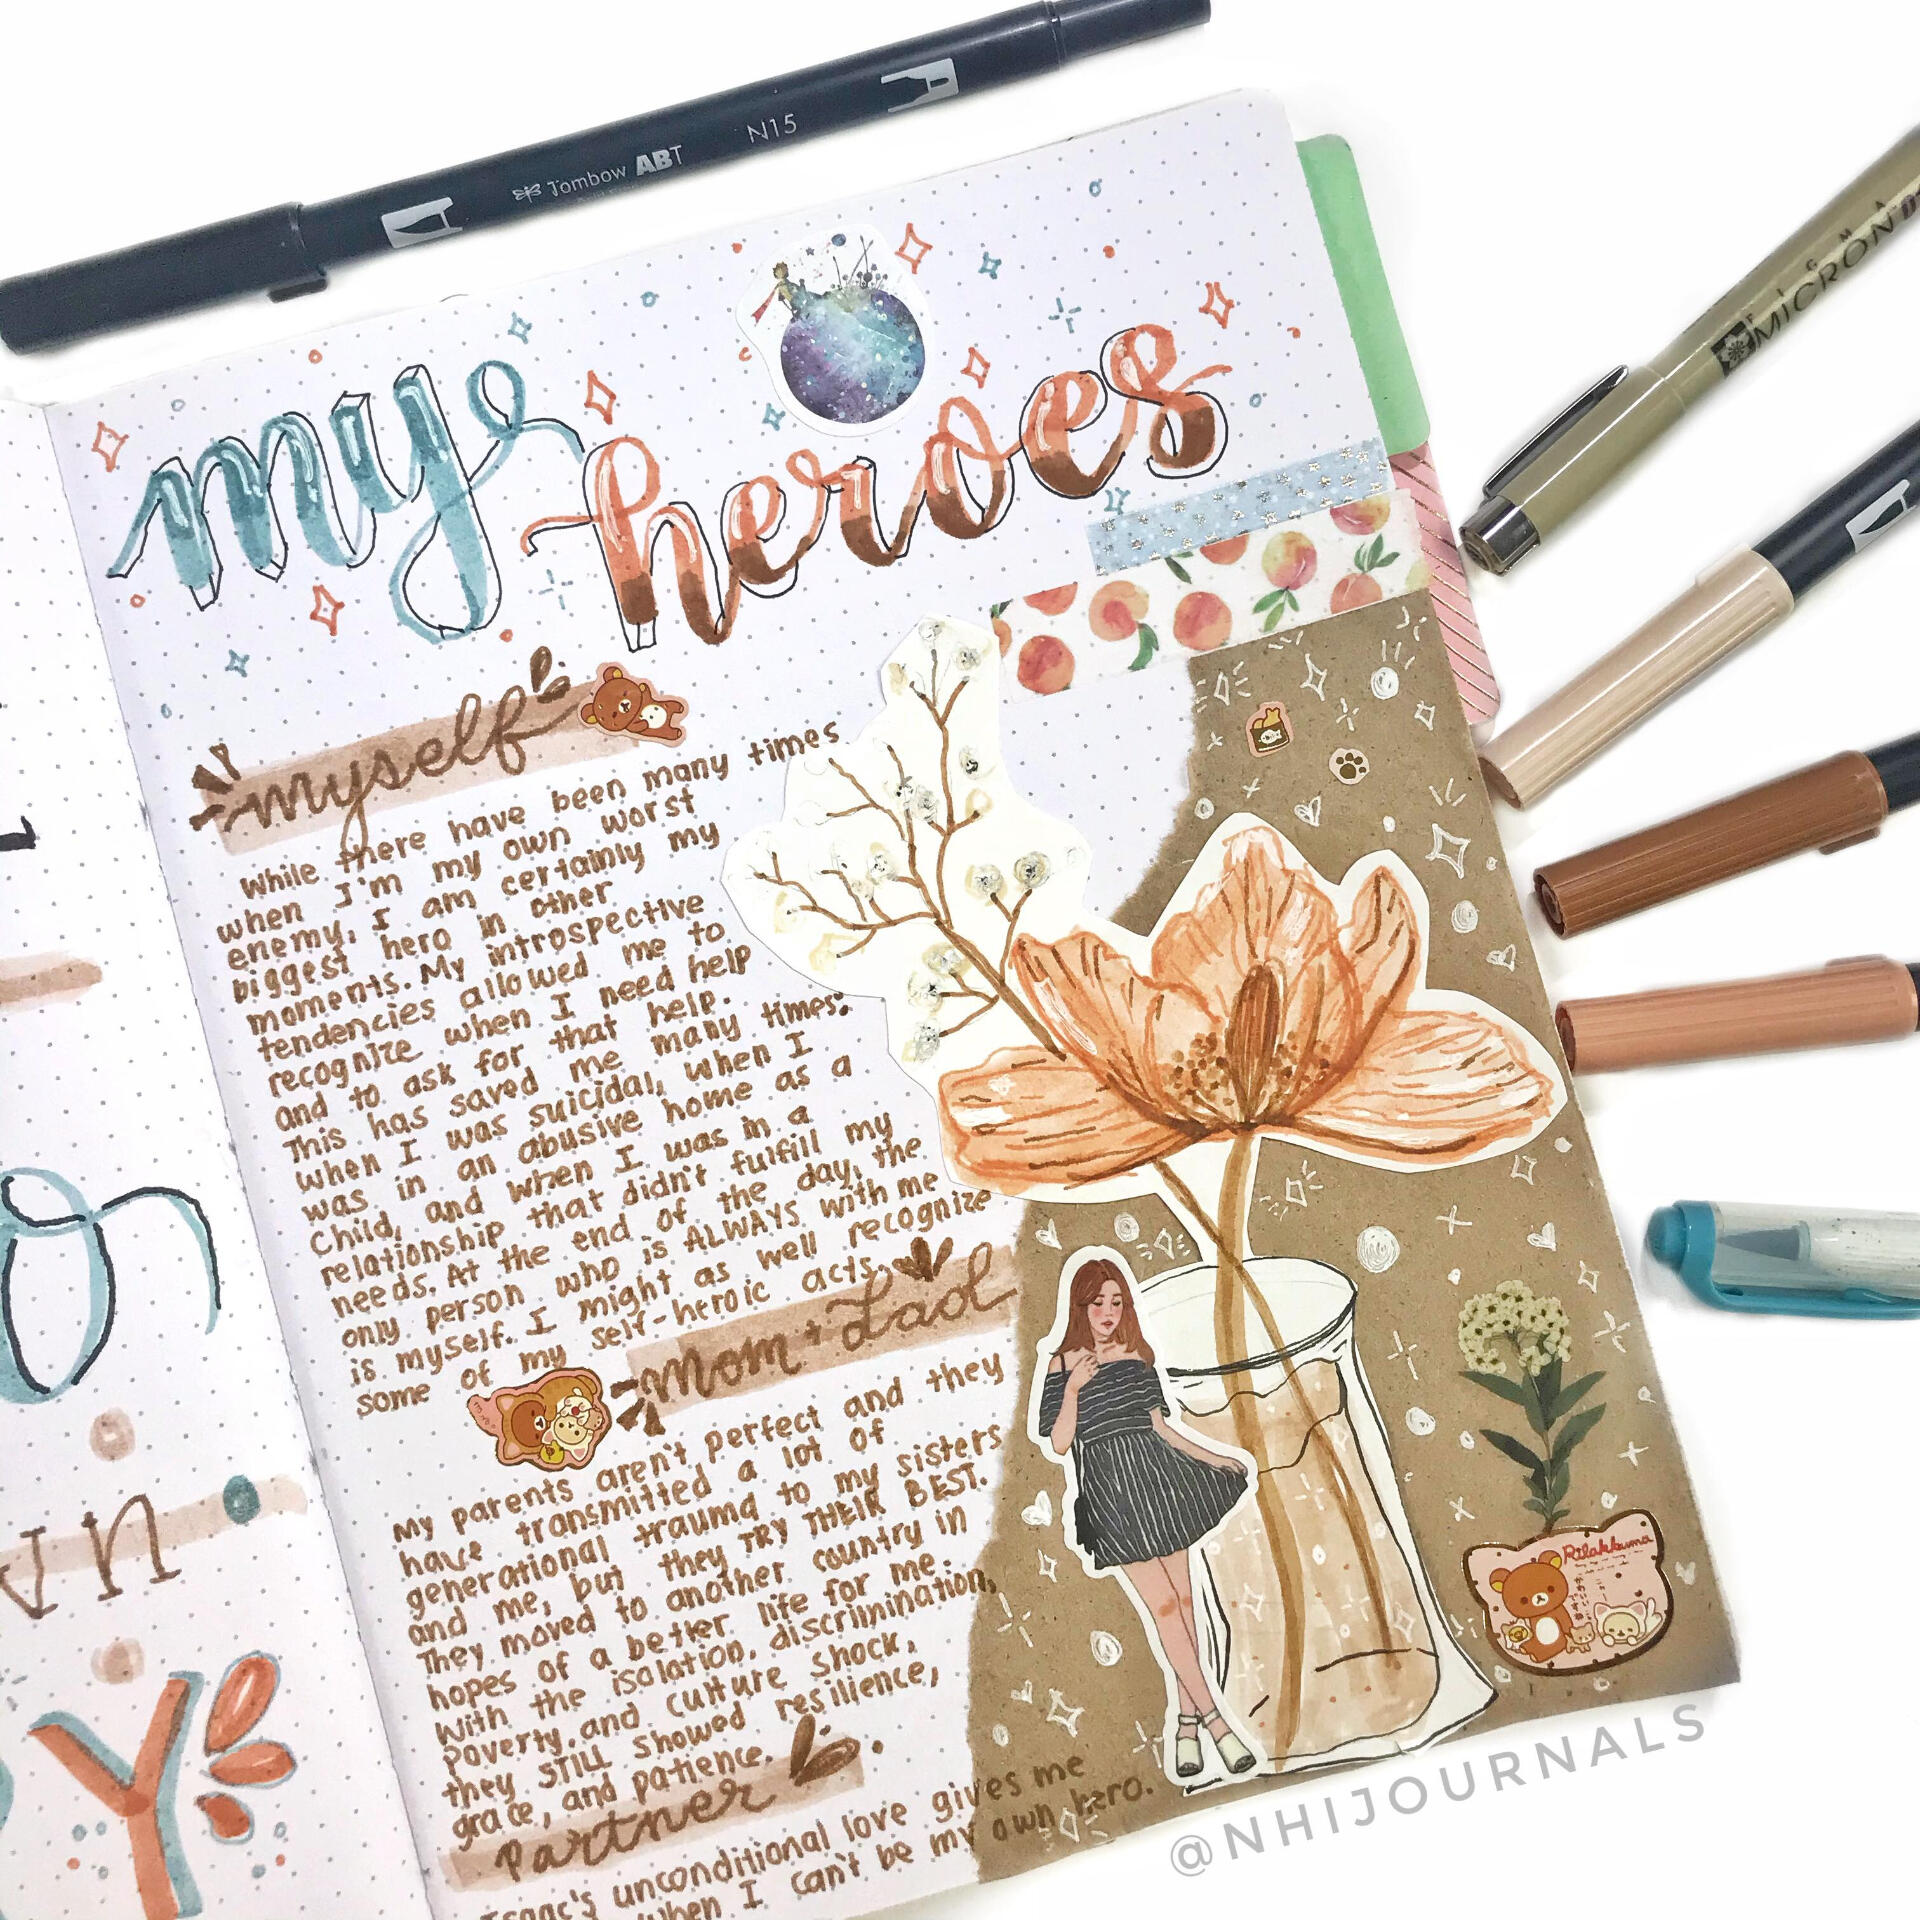 Tombow ABT N15
MICRON
my heroes
myself
While there have been many times
when I'm my own worst
enemy, I am certainly my
biggest hero in other
moments. My introspective
tendencies allowed me to
recognize when I need help
and to ask for that help.
This has saved me many times:
when I was suicidal, when I
was in an abusive home as a
child, and when I was in a
relationship that didn't fulfill my
needs. At the end of the day, the
only person who is ALWAYS with me
is myself. I might as well recognize
some of my self-heroic acts.
Mom + Dad
My parents aren't perfect and they
have transmitted a lot of
generational trauma to my sisters
and me, but they TRY THEIR BEST.
They moved to another country in
hopes of a better life for me.
With the isolation, discrimination,
poverty, and culture shock,
they STILL showed resilience,
grace, and patience.
Partner
Isaac's unconditional love gives me
when I can't be my own hero.
Rilakkuma
@NHIJOURNALS